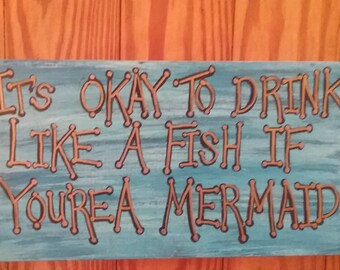 IT'S OKAY TO DRINK
LIKE A FISH IF
YOU'RE A MERMAID